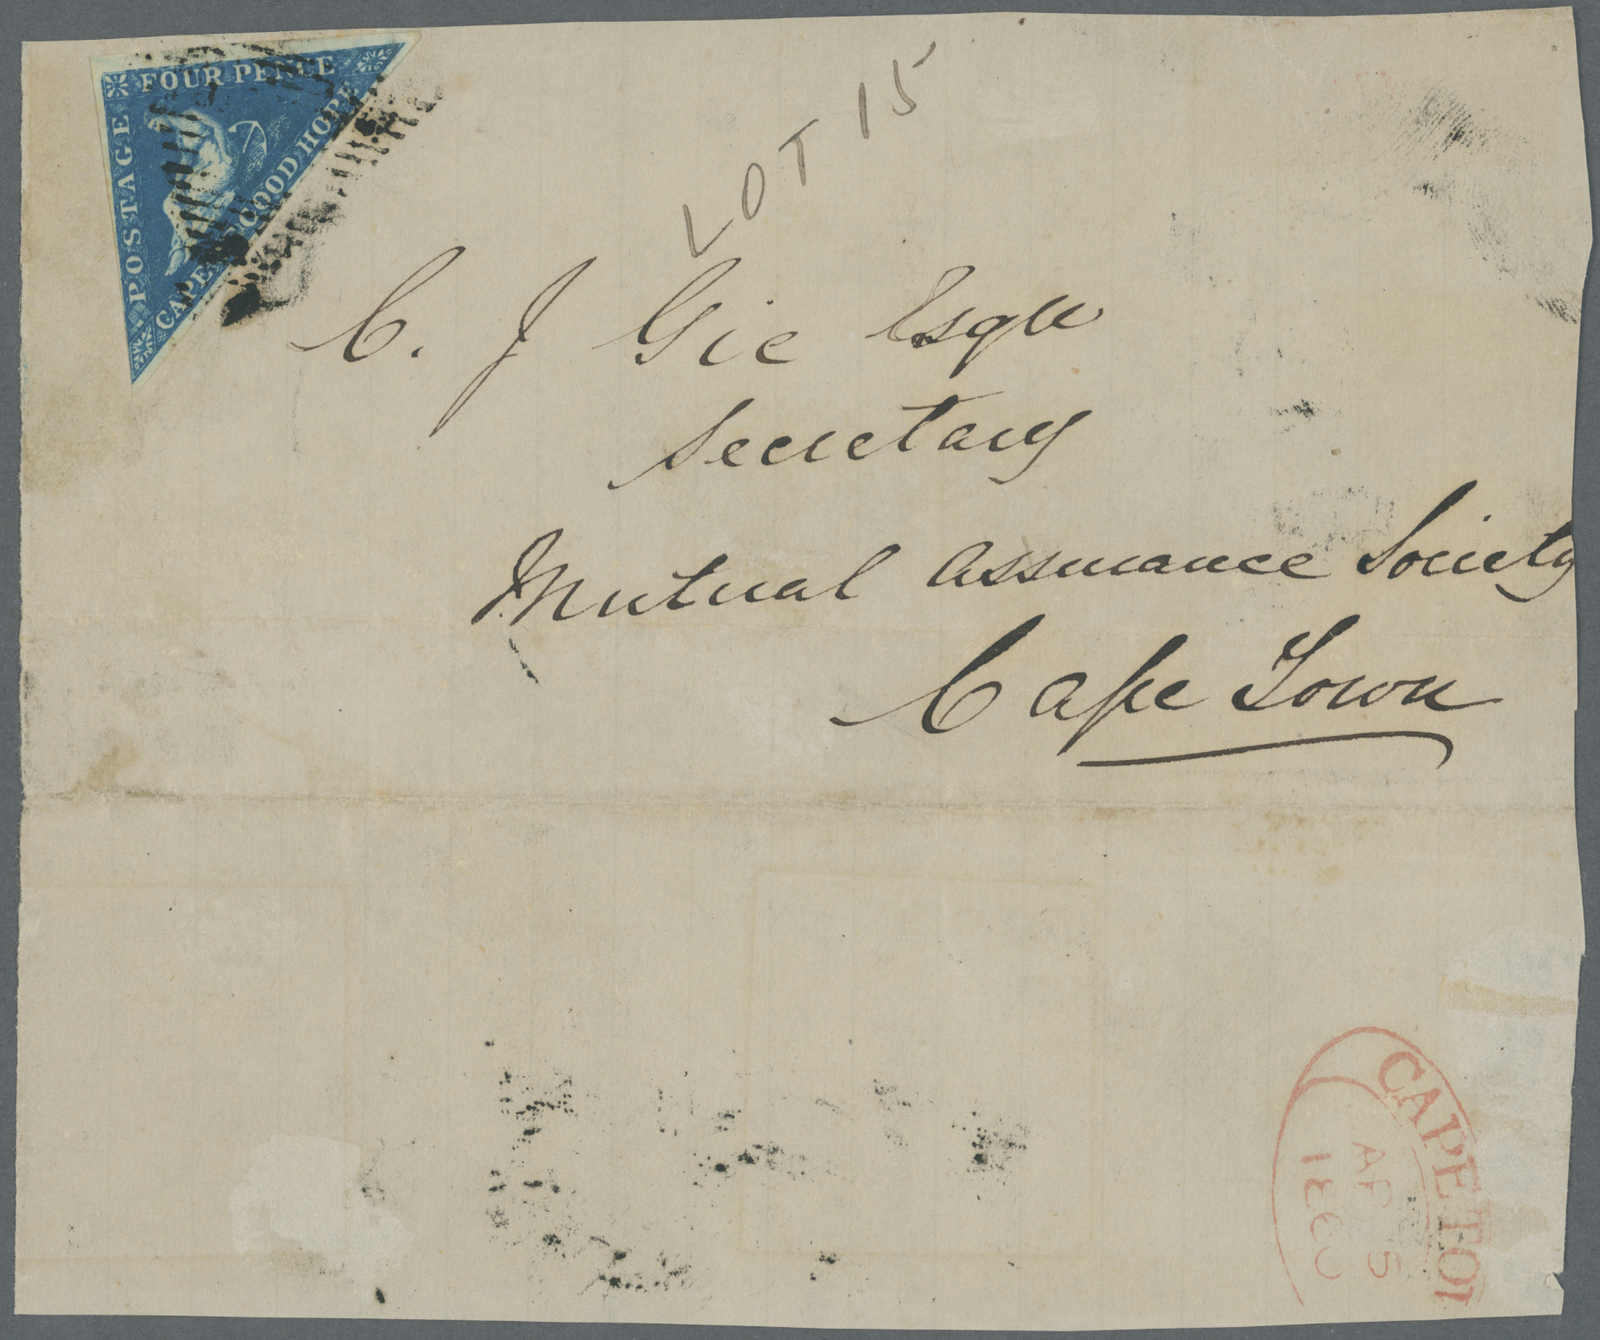 FOUR PENCE
POSTAGE
CAPE GOOD HOPE
LOT 15
C. J Gie Esqre
Secretary
Mutual Assurance Society
Cape Town
CAPE TO
AP 5
1860